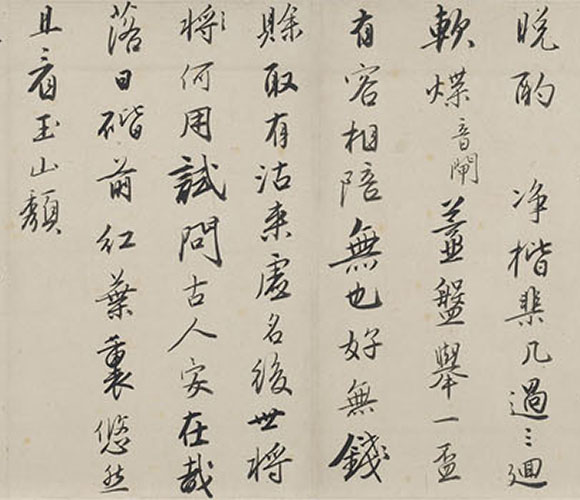 晚酌 净揩棐几過三迴
軟煠音閘薑盤舉一盃
有客相陪無也好無錢
賒取有沽來虛名後世將
將何用試問古人安在哉
落日階前紅葉裏悠然
且看玉山頹